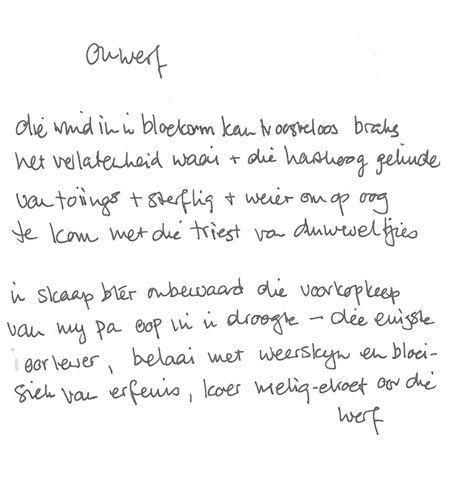 Ouwerf
die wind in 'n bloekom kan troosteloos
het verlatenheid waai + die gelinde
van toiings + sterflig + weier om op oog
te kom met die triest van duwweltjies
'n skaap blêr onbewaard die voorkopkeep
van my pa oop in 'n droogte – die enigste
oorlewer, belaai met weerskyn en bloei-
siek van erfenis, koer oor die
werf